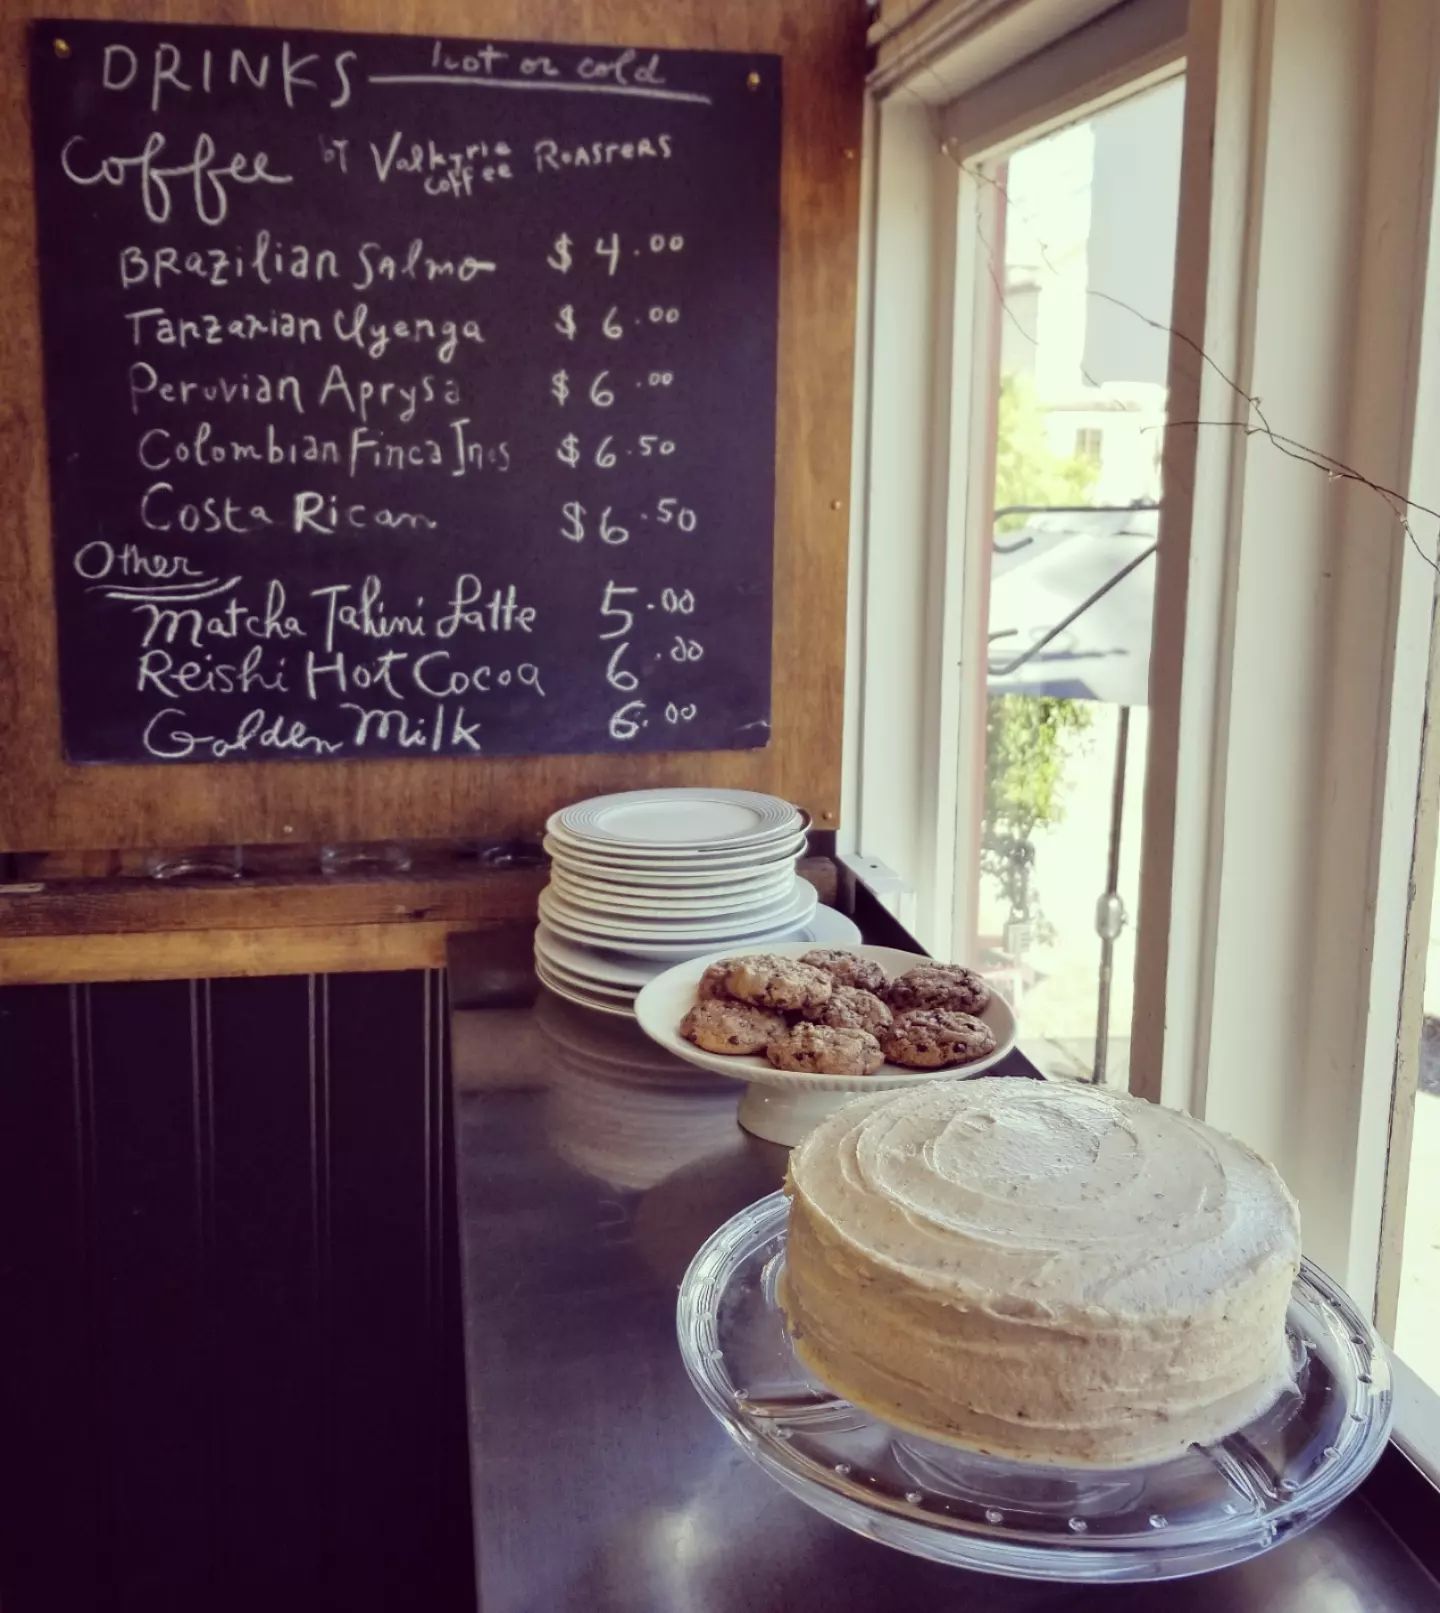 DRINKS hot or cold
Coffee by Valkyrie coffee Roasters
Brazilian Salmo $4.00
Tanzanian Uyenga $6.00
Peruvian Aprysa $6.00
Colombian Finca Ines $6.50
Costa Rican $6.50
Other
Matcha Tahini Latte 5.00
Reishi Hot Cocoa 6.00
Golden Milk 6.00